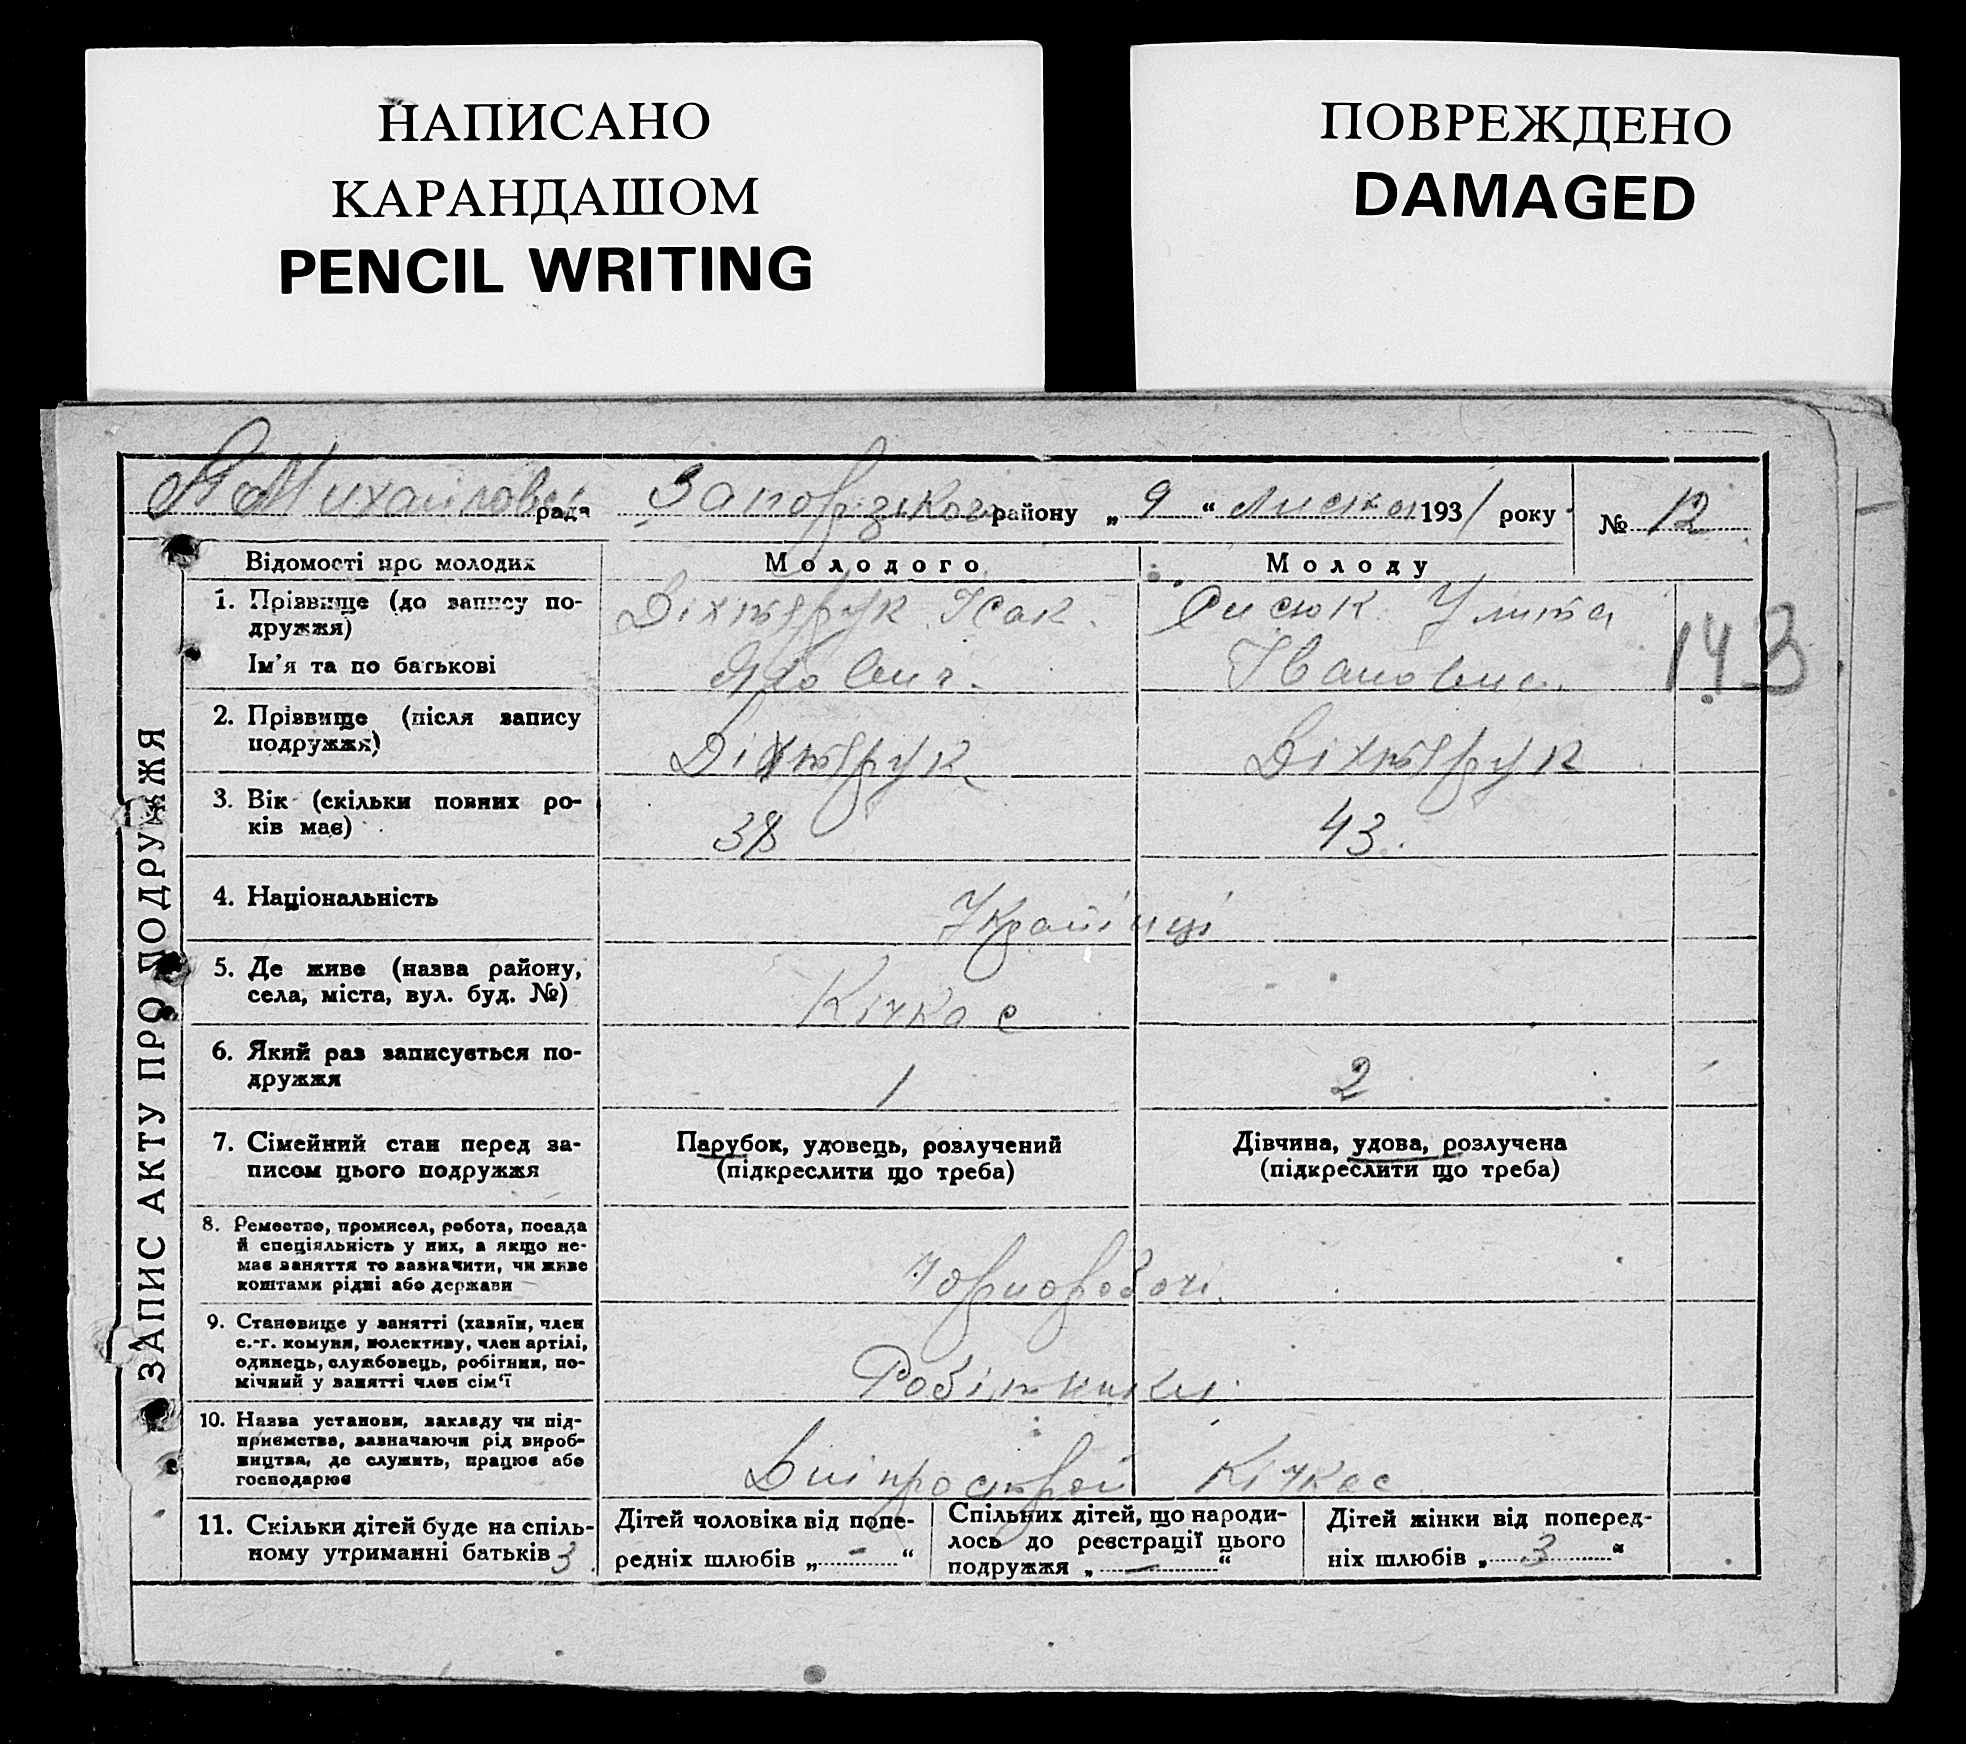 НАПИСАНО
КАРАНДАШОМ
PENCIL WRITING
ПОВРЕЖДЕНО
DAMAGED
Михайловськ рада Запорізького району „ 9 “ 1931 року № 12
ЗАПИС АКТУ ПРО ПОДРУЖЖЯ
Відомості про молодих Молодого Молоду
1. Прізвище (до запису по-
дружжя)
Ім'я та по батькові
Діхтярук Ісак
Сисюк Улита
Івановна
143
2. Прізвище (після запису
подружжя)
Діхтярук Діхтярук
3. Вік (скільки повних ро-
ків має)
38 43.
4. Національність
Українці
5. Де живе (назва району,
села, міста, вул. буд. №)
Кічкас
6. Який раз записується по-
дружжя
1 2
7. Сімейний стан перед за-
писом цього подружжя
Парубок, удовець, розлучений
(підкреслити що треба)
Дівчина, удова, розлучена
(підкреслити що треба)
8. Ремество, промисел, робота, посада
й спеціяльність у них, а якщо не-
має заняття то зазначити, чи живе
коштами рідні або держави
Чорноробочі.
9. Становище у занятті (хазяїн, член
с.-г. комуни, колективу, член артілі,
одинець, службовець, робітник, по-
мічний у занятті член сім'ї
Робітники.
10. Назва установи, закладу чи під-
приємства, зазначаючи рід вироб-
ництва, де служить, працює або
господарює
Дніпрострой Кічкас
11. Скільки дітей буде на спіль-
ному утриманні батьків 3.
Дітей чоловіка від попе-
редніх шлюбів „ – “
Спільних дітей, що народи-
лось до реєстрації цього
подружжя „ – “
Дітей жінки від поперед-
ніх шлюбів „ 3 “